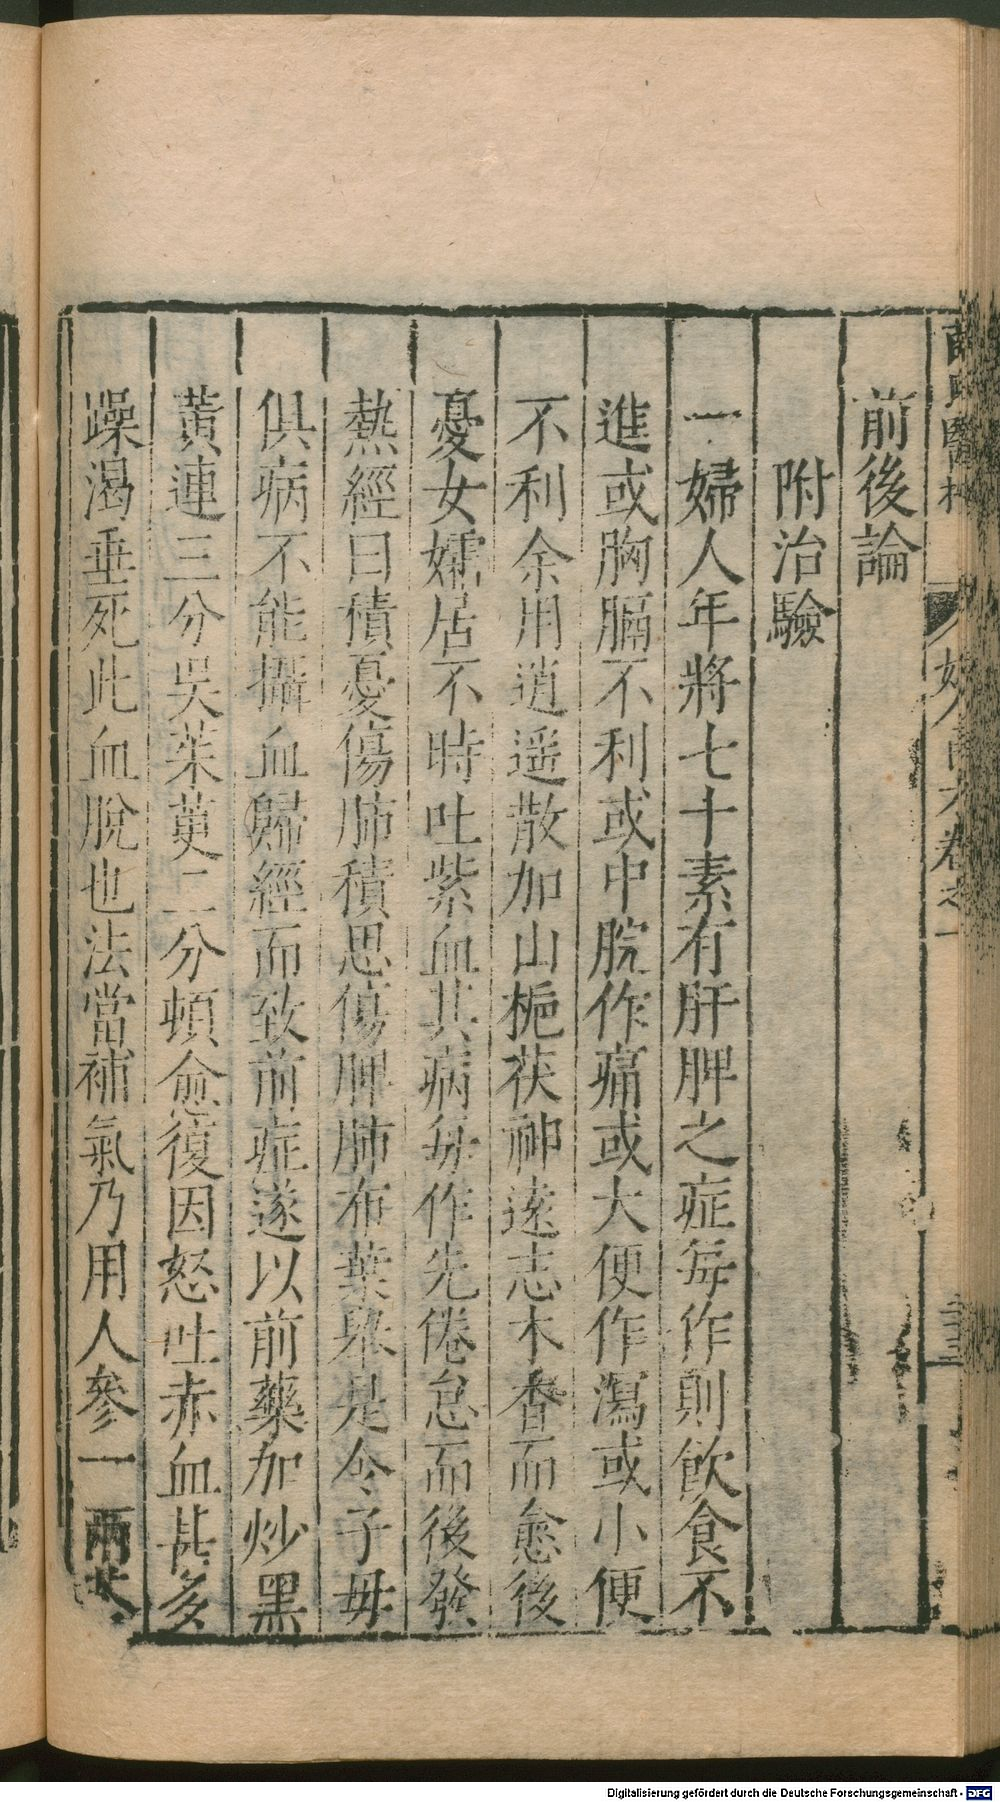 薛氏醫按 婦人良方卷之一 三三
前後論
附治驗
一婦人年將七十素有肝脾之症每作則飲食不
進或胸膈不利或中脘作痛或大便作瀉或小便
不利余用逍遥散加山梔茯神遠志木香而愈後
憂女孀居不時吐紫血其病每作先倦怠而後發
熱經曰積憂傷肺積思傷脾肺布葉舉是令子母
俱病不能攝血歸經而致前症遂以前藥加炒黑
黃連三分吳茱萸二分頓愈復因怒吐赤血甚多
躁渴垂死此血脫也法當補氣乃用人參一兩苓
Digitalisierung gefördert durch die Deutsche Forschungsgemeinschaft - DFG